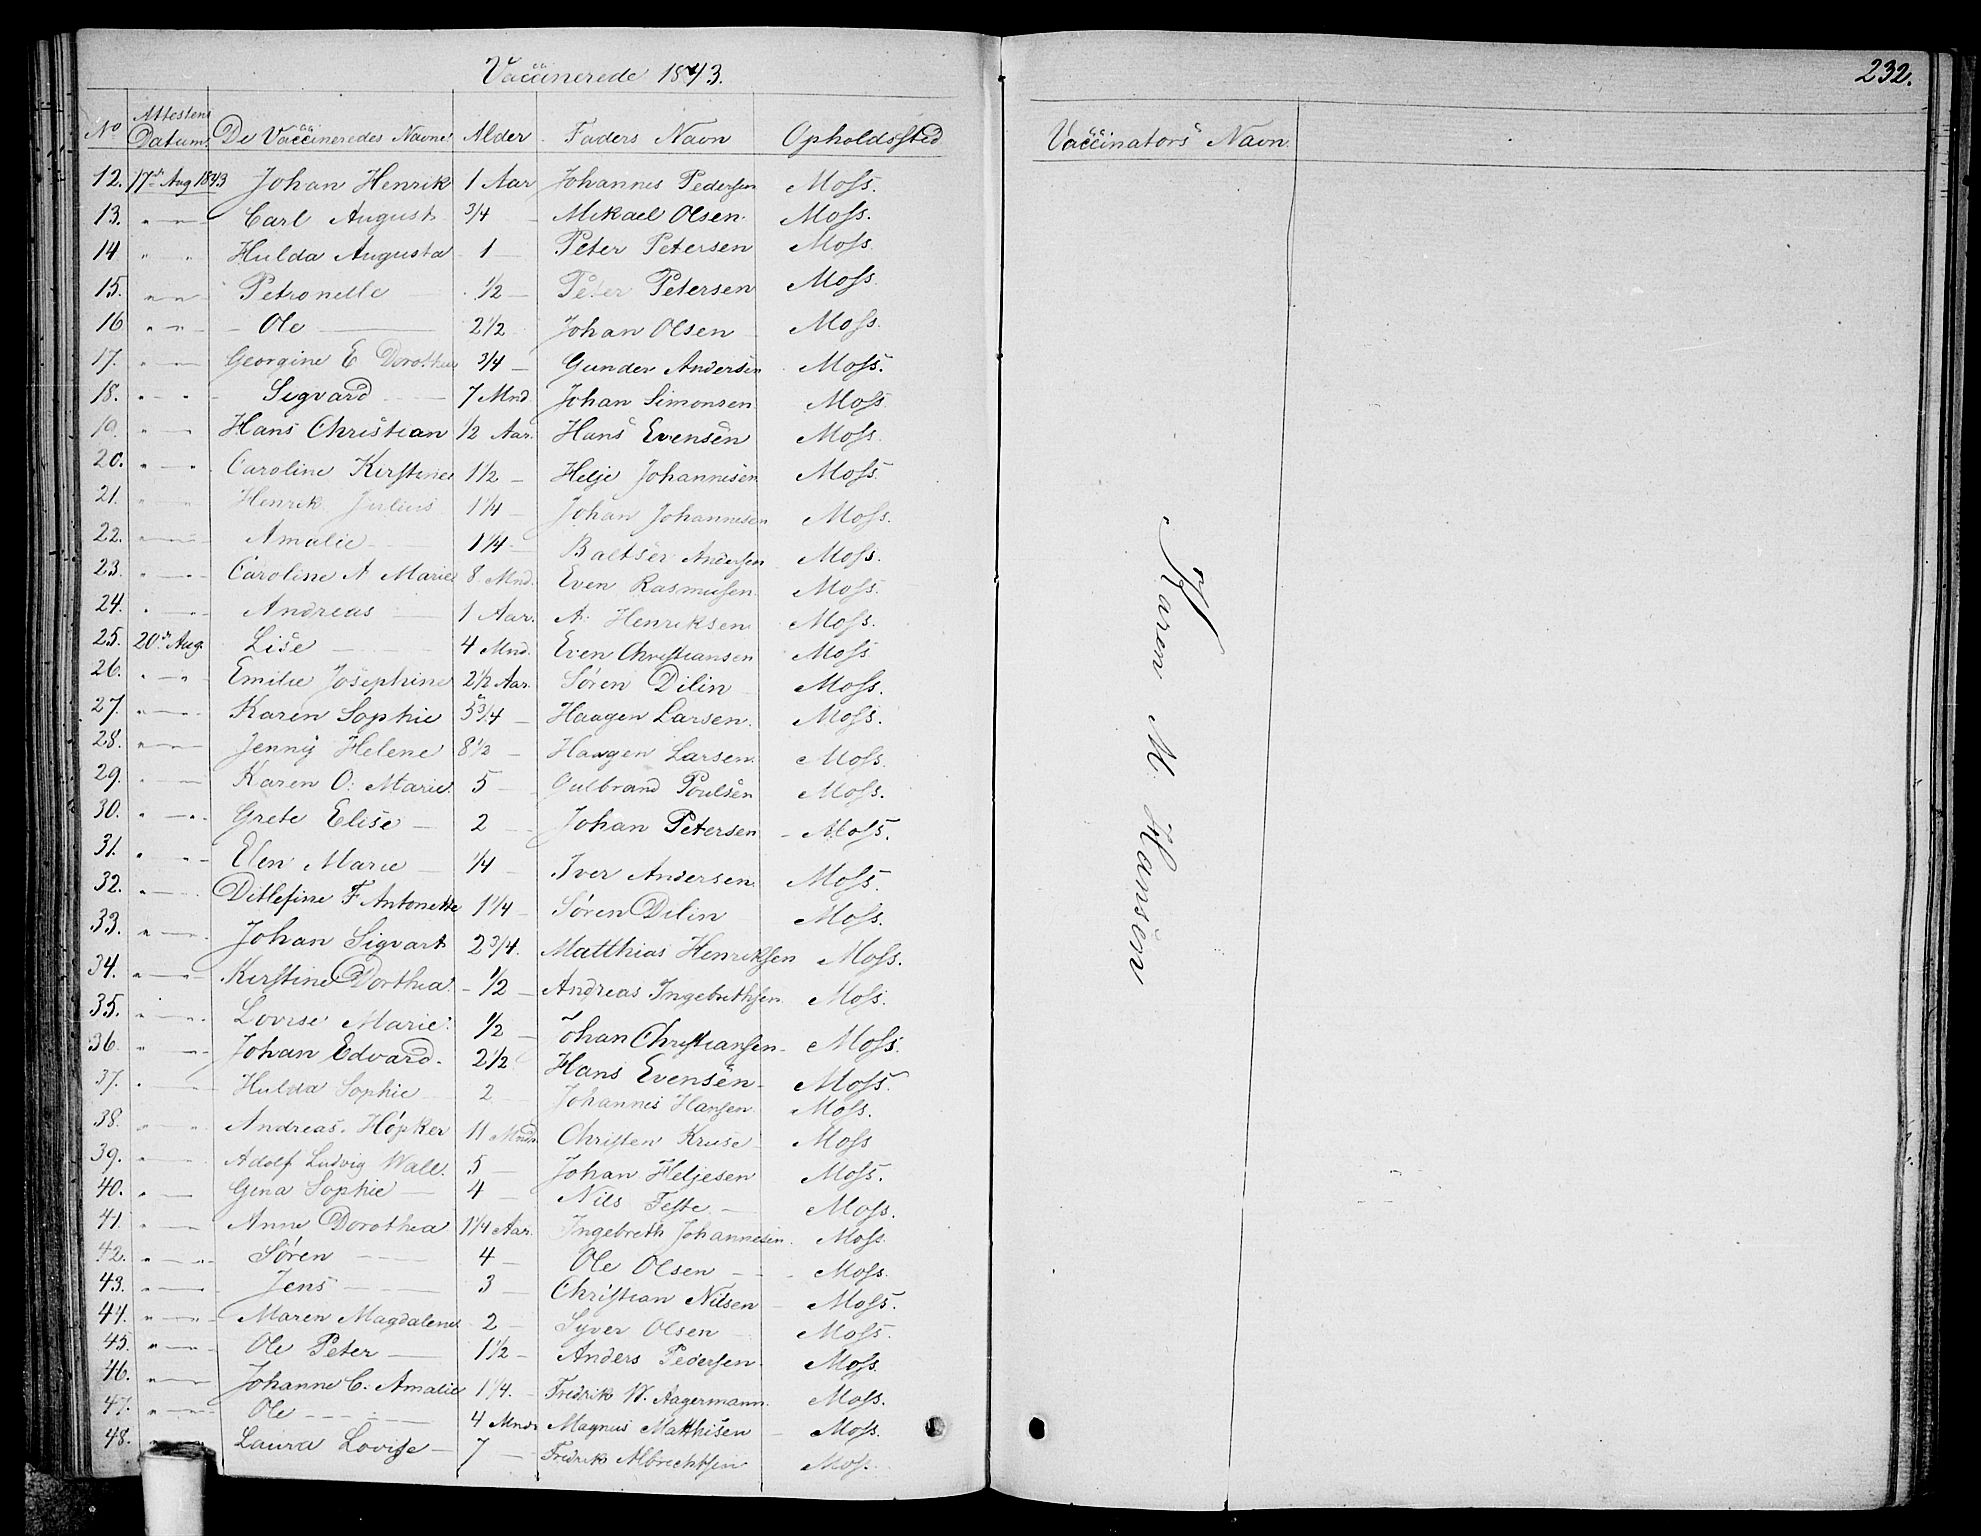 Vaccinerede 1843.
232.
No Attestens Datum. De Vaccineredes Navne Alder Faders Navn Opholdssted Vaccinators Navn
12. 17de Aug 1843 Johan Henrik 1 Aar Johannes Pedersen Moss.
13. " — " Carl August 3/4 — Mikael Olsen. Moss.
14 " " Hulda Augusta 1 — Peter Petersen Moss.
15. " — " Petronelle 1/2 — Peter Petersen Moss.
16 " — " Ole 2 1/2 Johan Olsen Moss.
17. " — " Georgine E Dorothea 3/4 — Gunder Andersen Moss.
18. " — " Sigvard 7 Mnd Johan Simonsen Moss
19. " — " Hans Christian 1/2 Aar. Hans Evensen Moss.
20. " — " Caroline Kirstine 1 1/2 — Helje Johannesen Moss.
21. " — " Henrik Julius 1 1/4 — Johan Johannesen Moss.
22. " — " Amalie 1 1/4 — Baltser Andersen Moss.
23. " — " Caroline A Marie 8 Mnd. Even Rasmussen Moss.
24. " — " Andreas 1 Aar. A. Henriksen Moss.
25. 20de Aug. Lise 4 Mnd. Even Christiansen Moss
26. " — " Emilie Josephine 2 1/2 Aar. Sören Dilin Moss.
27. " — " Karen Sophie 5 3/4 — Haagen Larsen. Moss.
28. " — " Jenny Helene 8 1/2 — Haagen Larsen. Moss.
29. " — " Karen O. Marie. 5 — Gulbrand Poulsen Moss.
30. " — " Grete Elise — 2 — Johan Petersen Moss.
31. " — " Elen Marie — 1/4 — Iver Andersen Moss.
32. " — " Ditlefine F Antonette 1 1/4 — Sören Dilin Moss.
33. " — " Johan Sigvart 2 3/4. Matthias Henriksen Moss.
34. " — " Kirstine Dorthea. 1/2 — Andreas Ingebrethsen Moss.
35. " — " Lovise Marie. 1/2 — Johan Christiansen Moss.
36. " — " Johan Edvard. 2 1/2 Hans Evensen Moss.
37. " — " Hulda Sophie 2 — Johannes Hansen. Moss.
38. " — " Andreas. Höpker 11 Mndr. Christen Kruse Moss
39. " — " Adolf Ludvig Wall. 5 — Johan Heljesen Moss.
40. " — " Gina Sophie — 4 — Nils Feste Moss.
41. " — " Anne Dorothea 1 1/4 Aar. Ingebreth Johannesen. Moss.
42. " — " Sören 4 — Ole Olsen Moss.
43. " — " Jens 3 — Christian Nilsen Moss.
44. " — " Maren Magdalene 2 — Syver Olsen Moss.
45. " — " Ole Peter — 1 1/2 — Anders Pedersen. Moss.
46. " — " Johanne C. Amalie 1 1/4. — Fredrik W. Aagermann. Moss.
47. " — " Ole 4 Mndr Magnus Matthisen Moss.
48. Laura Lovise — 7 — Fredrik Albrechtsen Moss.
Karen M. Hansen